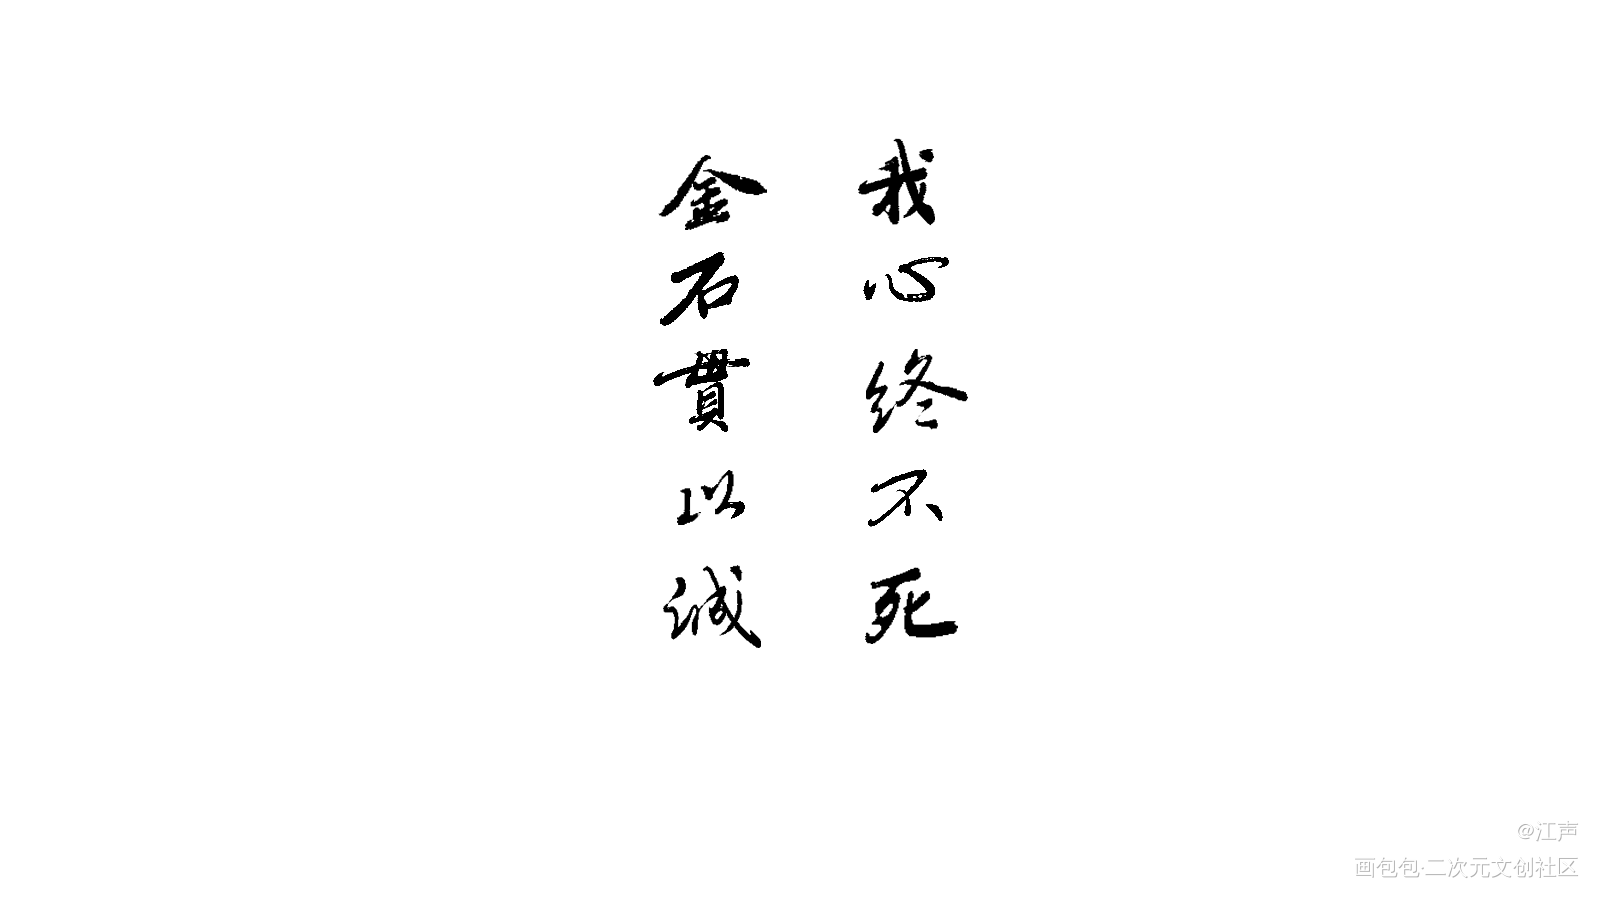 我心终不死
金石貫以诚
@江声
画包包·二次元文创社区